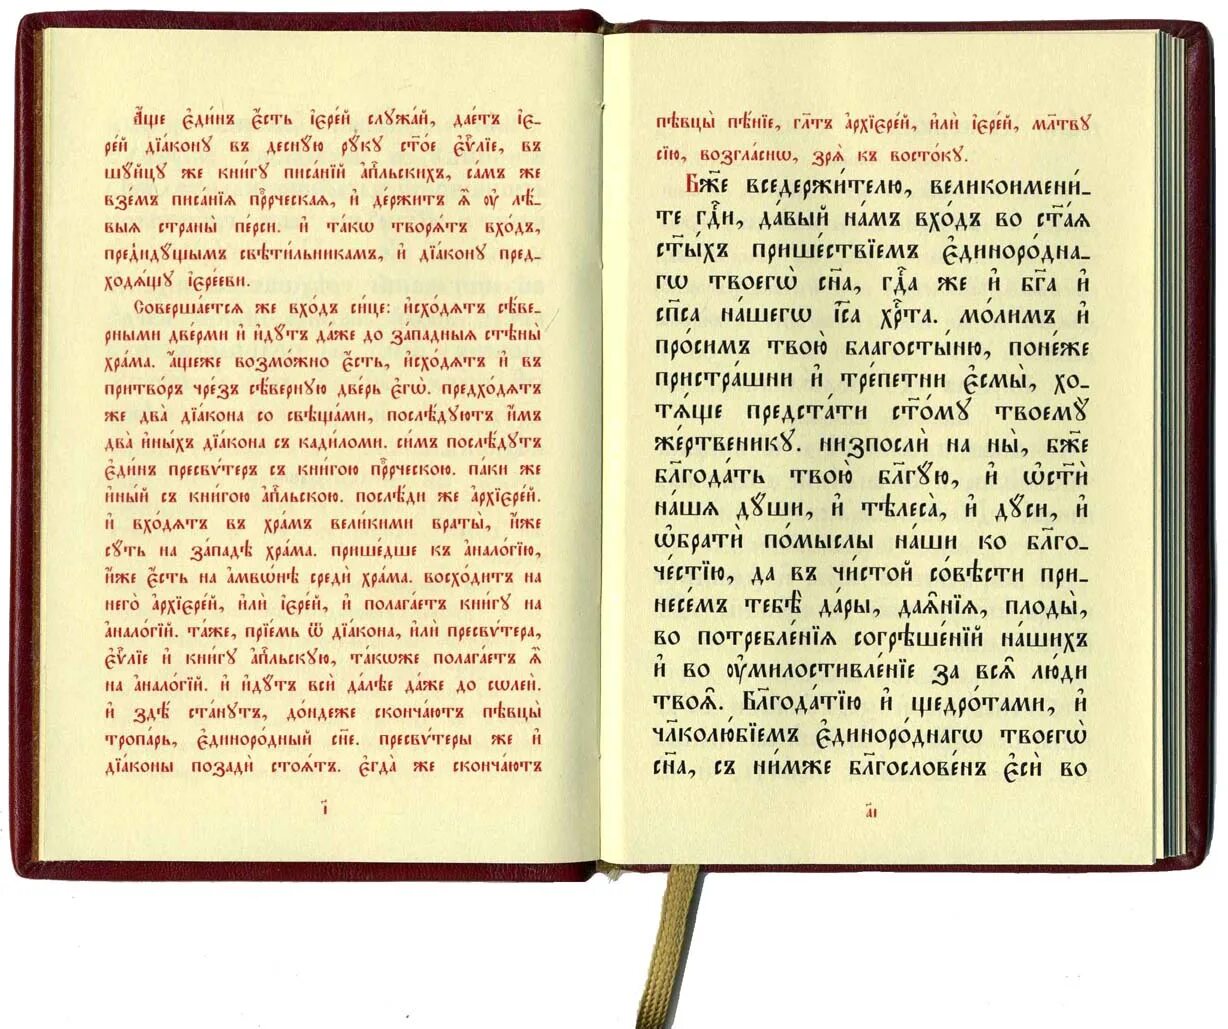 А҆́ще є҆ди́нъ є҆́сть і҆ере́й слꙋжа́й, дае́тъ і҆е-
ре́й дїа́конꙋ въ деснꙋ́ю рꙋ́кꙋ ст҃о́е є҆ѵⷢ҇лїе, въ
шꙋ́йцꙋ же кни́гꙋ писа́нїй а҆пⷭ҇льскихъ, са́мъ же
взе́мъ писа̑нїѧ прⷪ҇рческаѧ, и҆ де́ржитъ ѧ҆̀ ᲂу҆ лѣ́-
выѧ страны̀ пе́рси. и҆ та́кѡ творѧ́тъ вхо́дъ,
пред̾идꙋ́щымъ свѣти́льникамъ, и҆ дїа́конꙋ пред-
ходѧ́щꙋ і҆ере́еви.
Соверша́етсѧ же вхо́дъ си́це: и҆схо́дѧтъ сѣ́вер-
ными две́рми и҆ и҆дꙋ́тъ да́же до за́падныѧ стѣны̀
хра́ма. а҆́щеже возмо́жно є҆́сть, и҆схо́дѧтъ и҆ въ
притво́ръ чре́зъ сѣ́вернꙋю две́рь є҆гѡ̀. предхо́дѧтъ
же два̀ дїа́кона со свѣща́ми, послѣ́дꙋютъ и҆̀мъ
два̀ и҆́ныхъ дїа́кона съ кади́лѡми. си́мъ послѣ́дꙋтъ
є҆ди́нъ пресвѵ́теръ съ кни́гою прⷪ҇рческою. па́ки же
и҆́ный съ кни́гою а҆пⷭ҇льскою. послѣди́ же а҆рхїере́й.
и҆ вхо́дѧтъ въ хра́мъ вели́кими враты̀, и҆̀же
сꙋ́ть на за́падѣ хра́ма. прише́дше къ а҆нало́гїю,
и҆́же є҆́сть на а҆мвѡ́нѣ средѝ хра́ма. восхо́дитъ на
него̀ а҆рхїере́й, и҆лѝ і҆ере́й, и҆ полага́етъ кни́гꙋ на
а҆нало́гїй. та́же, прїе́мь ѿ дїа́кона, и҆лѝ пресвѵ́тера,
є҆ѵⷢ҇лїе и҆ кни́гꙋ а҆пⷭ҇льскꙋю, та́кѡже полага́етъ ѧ҆̀
на а҆нало́гїй. и҆ и҆дꙋ́тъ всѝ да́лѣе да́же до солей.
и҆ здѣ̀ ста́нꙋтъ, до́ндеже сконча́ютъ пѣвцы̀
тропа́рь, є҆диноро́дный сн҃е. пресвѵ́теры же и҆
дїа́коны позадѝ стоѧ́тъ. є҆гда́ же сконча́ютъ
і҃
пѣвцы̀ пѣ́нїе, гл҃тъ а҆рхїере́й, и҆лѝ і҆ере́й, мл҃твꙋ
сїю̀, возгла́снѡ, зрѧ̀ къ восто́кꙋ.
Бж҃е вседержи́телю, великоимени́-
те гдⷭ҇и, да́вый на́мъ вхо́дъ во ст҃а̑ѧ
ст҃ы́хъ прише́ствїемъ є҆диноро́дна-
гѡ твоегѡ̀ сн҃а, гдⷭ҇а же и҆ бг҃а и҆
сп҃са на́шегѡ і҆и҃са хрⷭ҇та̀. мо́лимъ и҆
про́симъ твою̀ благосты́ню, поне́же
пристра́шни и҆ тре́петни є҆смы̀, хо-
тѧ́ще предста́ти ст҃о́мꙋ твоемꙋ̀
же́ртвеникꙋ. низпослѝ на ны̀, бж҃е
бл҃года́ть твою̀ бл҃гꙋ́ю, и҆ ѡ҆ст҃ѝ
на́шѧ дꙋ́ши, и҆ тѣлеса̀, и҆ дꙋ́си, и҆
ѡ҆братѝ по́мыслы на́ши ко бл҃го-
че́стїю, да въ чи́стой со́вѣсти при-
несе́мъ тебѣ̀ да́ры, даѧ҄нїѧ, плоды̀,
во потребле́нїѧ согрѣше́нїй на́шихъ
и҆ во ᲂу҆ми́лостивле́нїе за всѧ̑ лю́ди
твоѧ҄. Бл҃года́тїю и҆ щедро́тами, и҆
чл҃колю́бїемъ є҆диноро́днагѡ твоегѡ̀
сн҃а, съ ни́мже бл҃гослове́нъ є҆сѝ во
а҃і